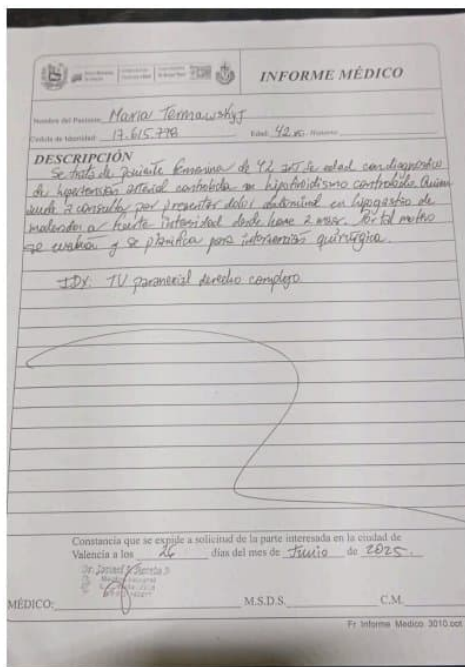 INFORME MÉDICO
Nombre del Paciente Maria
Cédula de Identidad 17.615.778 Edad: 42
DESCRIPCIÓN
Se trata de paciente femenina de 42 de edad con diagnóstico
de hipertensión arterial controlada hipotiroidismo controlado. Quien
acude a consulta por presentar dolor abdominal en hipogastrio de
a fuerte intensidad desde hace 2 Por tal motivo
se evalúa y se planifica para intervención quirúrgica.
IDx: derecho complejo
Constancia que se expide a solicitud de la parte interesada en la ciudad de
Valencia a los 26 días del mes de Junio de 2025.
MÉDICO: M.S.D.S. C.M.
Fr Informe Medico 3010.